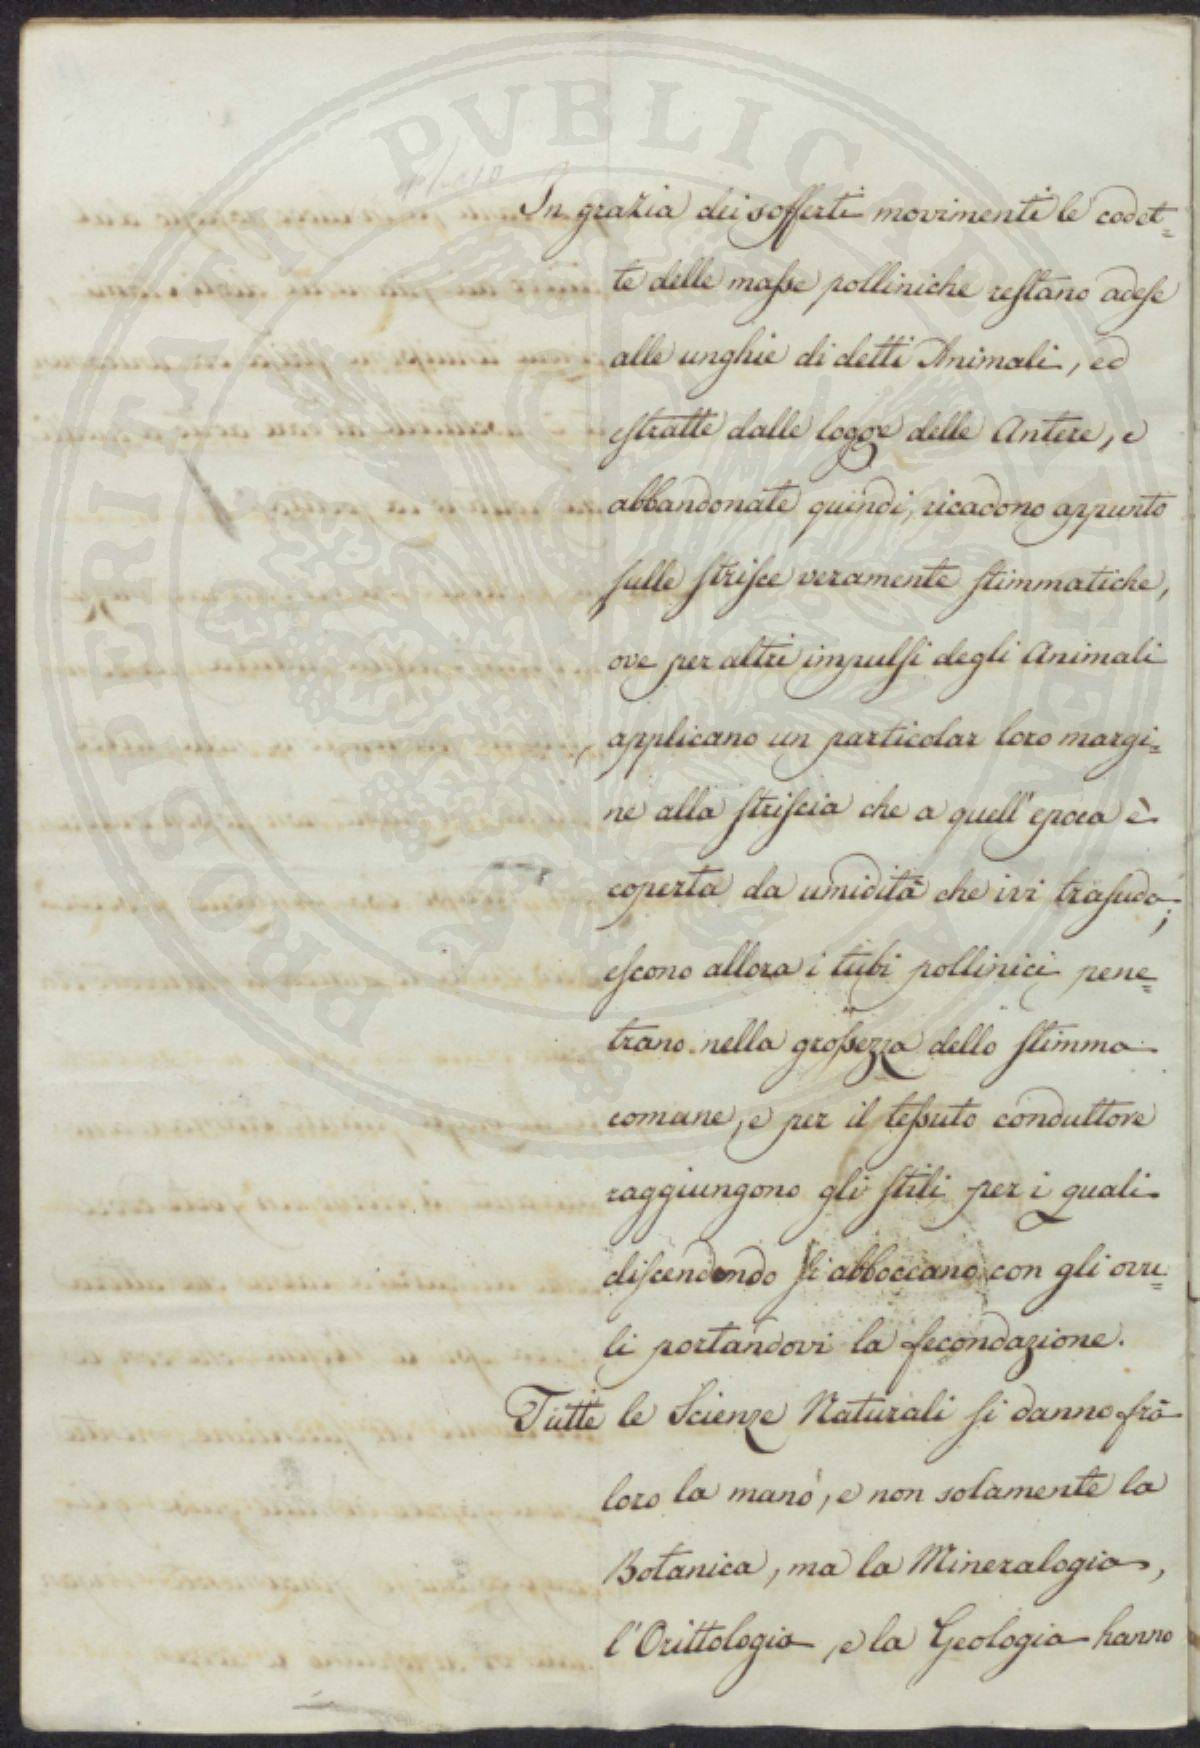 PROSPERITATI PVBLICAE AVGENDAE
In grazia dei sofferti movimenti le codet=
te delle masse polliniche restano adese
alle unghie di detti Animali, ed
estratte dalle logge delle Antere, e
abbandonate quindi, ricadono appunto
sulle strisce veramente stimmatiche,
ove per altri impulsi degli Animali
applicano un particolar loro margi=
ne alla striscia che a quell'epoca è
coperta da umidità che ivi trasuda;
escono allora i tubi pollinici pene=
trano nella grossezza dello stimma
comune, e per il tessuto conduttore
raggiungono gli stili per i quali
discendendo si abboccano con gli ovu=
li portandovi la fecondazione.
Tutte le Scienze Naturali si danno frà
loro la mano, e non solamente la
Botanica, ma la Mineralogia,
l'Orittologia, e la Geologia hanno